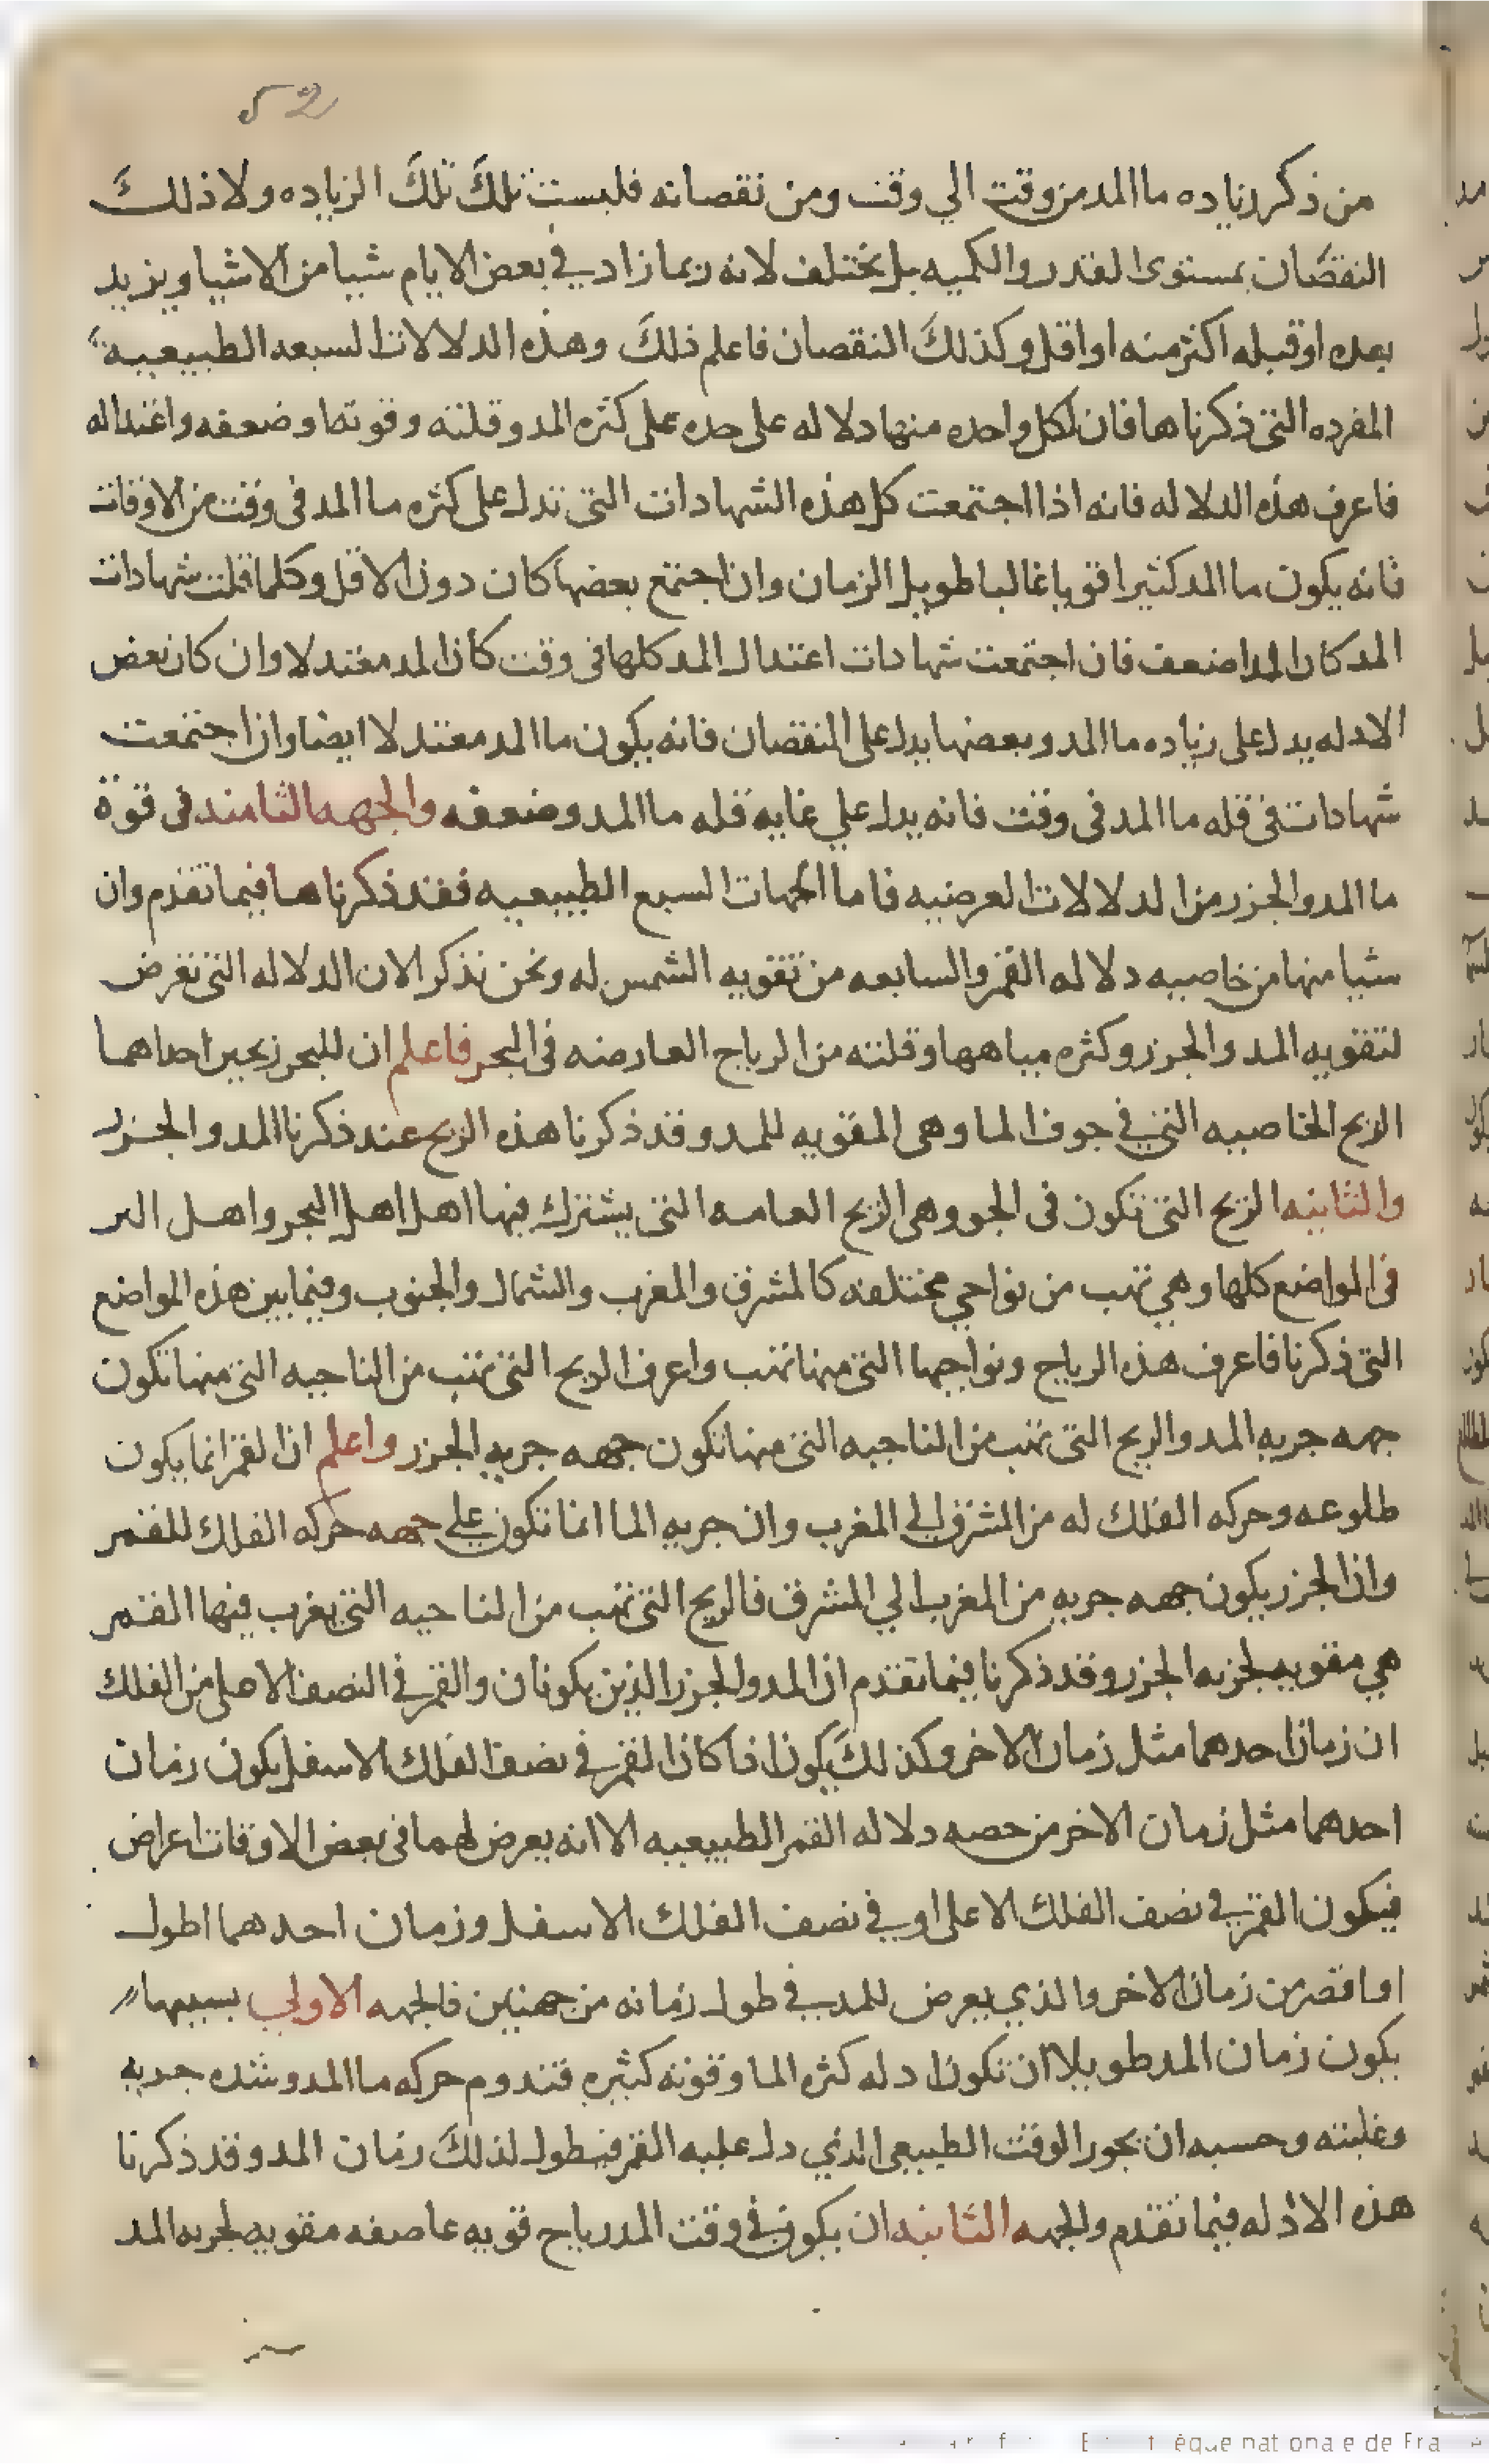 52
من ذكر زياده ما المد من وقت الي وقت ومن نقصانه فليست تلك تلك الزياده ولا ذلك
النقصان بمستوى القدر والكميه بل يختلف لانه ربما زاد في بعض الايام شيا من الاشيا ويزيد
بعده او قبله اكثر منه او اقل وكذلك النقصان فاعلم ذلك وهذه الدلالات السبعه الطبيعيه
المفرده التي ذكرناها فان لكل واحده منها دلاله على حده على كثره المد وقلته وقوته وضعفه واعتداله
فاعرف هذه الدلاله فانه اذا اجتمعت كل هذه الشهادات التي تدل على كثره ما المد في وقت من الاوقات
فانه يكون ما المد كثيرا قويا غالبا طويل الزمان وان اجتمع بعضها كان دون الاقل وكلما قلت شهادات
المد كان المد اضعف فان اجتمعت شهادات اعتدال المد كلها في وقت كان المد معتدلا وان كان بعض
الادله يدل على زياده ما المد وبعضها يدل على النقصان فانه يكون ما المد معتدلا ايضا وان اجتمعت
شهادات في قله ما المد في وقت فانه يدل علي غايه قله ما المد وضعفه والجهه الثامنه في قوة
ما المد والجزر من الدلالات العرضيه فاما الجهات السبع الطبيعيه فقد ذكرناها فيما تقدم وان
شيا منها من خاصيه دلاله القمر والسابعه من تقويه الشمس له ونحن نذكر الان الدلاله التي تعرض
لتقويه المد والجزر وكثره مياهها وقلته من الرياح العارضه في البحر فاعلم ان للبحر ريحين احداهما
الريح الخاصيه التي في جوف الما وهي المقويه للمد وقد ذكرنا هذه الريح عند ذكرنا المد والجزر
والثانيه الريح التي تكون في الجو وهي الريح العامه التي يشترك فيها اهل اهل البحر واهل البر
في المواضع كلها وهي تهب من نواحي مختلفه كالمشرق والمغرب والشمال والجنوب وفيما بين هذه المواضع
التي ذكرنا فاعرف هذه الرياح ونواحيها التي منها تهب واعرف الريح التي تهب من الناحيه التي منها تكون
جهه جريه المد والريح التي تهب من الناحيه التي منها تكون جهه جريه الجزر واعلم ان القمر انما يكون
طلوعه وحركه الفلك له من المشرق الى المغرب وان جريه الما انما تكون على جهه حركه الفلك للقمر
وان الجزر يكون جهه جريه من المغرب الي المشرق فالريح التي تهب من الناحيه التي يغرب فيها القمر
هي مقويه لجريه الجزر وقد ذكرنا فيما تقدم ان المد والجزر الذين يكونان والقمر في النصف الاعلى من الفلك
ان زمان احدهما مثل زمان الاخر وكذلك يكون اذا كان القمر في نصف الفلك الاسفل يكون زمان
احدهما مثل زمان الاخر من حصه دلاله القمر الطبيعيه الا انه يعرض لهما في بعض الاوقات اعراض
فيكون القمر في نصف الفلك الاعلى او في نصف الفلك الاسفل وزمان احدهما اطول
او اقصر من زمان الاخر والذي يعرض للمد في طول زمانه من جهتين فالجهه الاولي بسببها
يكون زمان المد طويلا ان تكون ادله كثره الما وقوته كثيره فتدوم حركه ما المد وشده جريه
وغلبته وحسبه ان يجوز الوقت الطبيعي الذي دل عليه القمر فيطول لذلك زمان المد وقد ذكرنا
هذه الادله فيما تقدم والجهه الثانيه ان يكون في وقت المد رياح قويه عاصفه مقويه لجريه المد